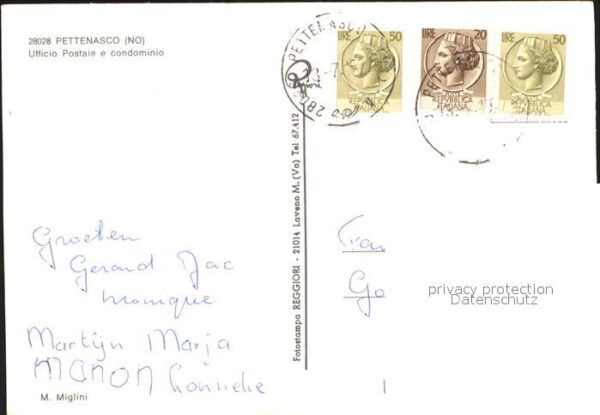 28028 PETTENASCO (NO)
Ufficio Postale e condominio
Groeten
Gerard Jac
Monique
Martijn Marja
MANON Lonneke
M. Miglini
Fotostampa REGGIORI - 21014 Laveno M. (Va) Tel 67.412
LIRE 50
REPVBBLICA
ITALIANA
LIRE 20
REPVBBLICA
ITALIANA
LIRE 50
REPVBBLICA
ITALIANA
PETTENASCO
PETTENASCO
Go
privacy protection
Datenschutz